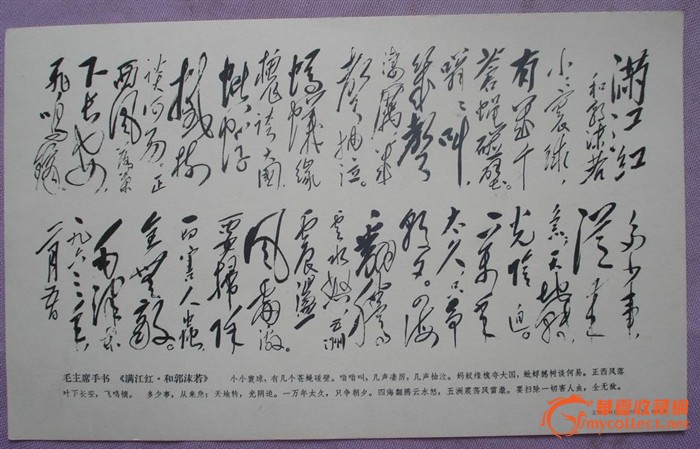 满江红
和郭沫若
小小寰球，
有几个
苍蝇碰壁。
嗡嗡叫，
几声
凄厉，几
声抽泣。
蚂蚁缘
槐夸大国，
蚍蜉
撼树
谈何易。正
西风落叶
下长安，
飞鸣镝。
多少事，
从来
急；天地转，
光阴迫。
一万年
太久，只争
朝夕。四海
翻腾
云水怒，五洲
震荡
风雷激。
要扫除
一切害人虫，
全无敌。
毛泽东
一九六三年
毛主席手书 《满江红·和郭沫若》 小小寰球，有几个苍蝇碰壁。嗡嗡叫，几声凄厉，几声抽泣。蚂蚁缘槐夸大国，蚍蜉撼树谈何易。正西风落
叶下长安，飞鸣镝。 多少事，从来急；天地转，光阴迫。一万年太久，只争朝夕。四海翻腾云水怒，五洲震荡风雷激。要扫除一切害人虫，全无敌。
华夏收藏网
mycollect.net